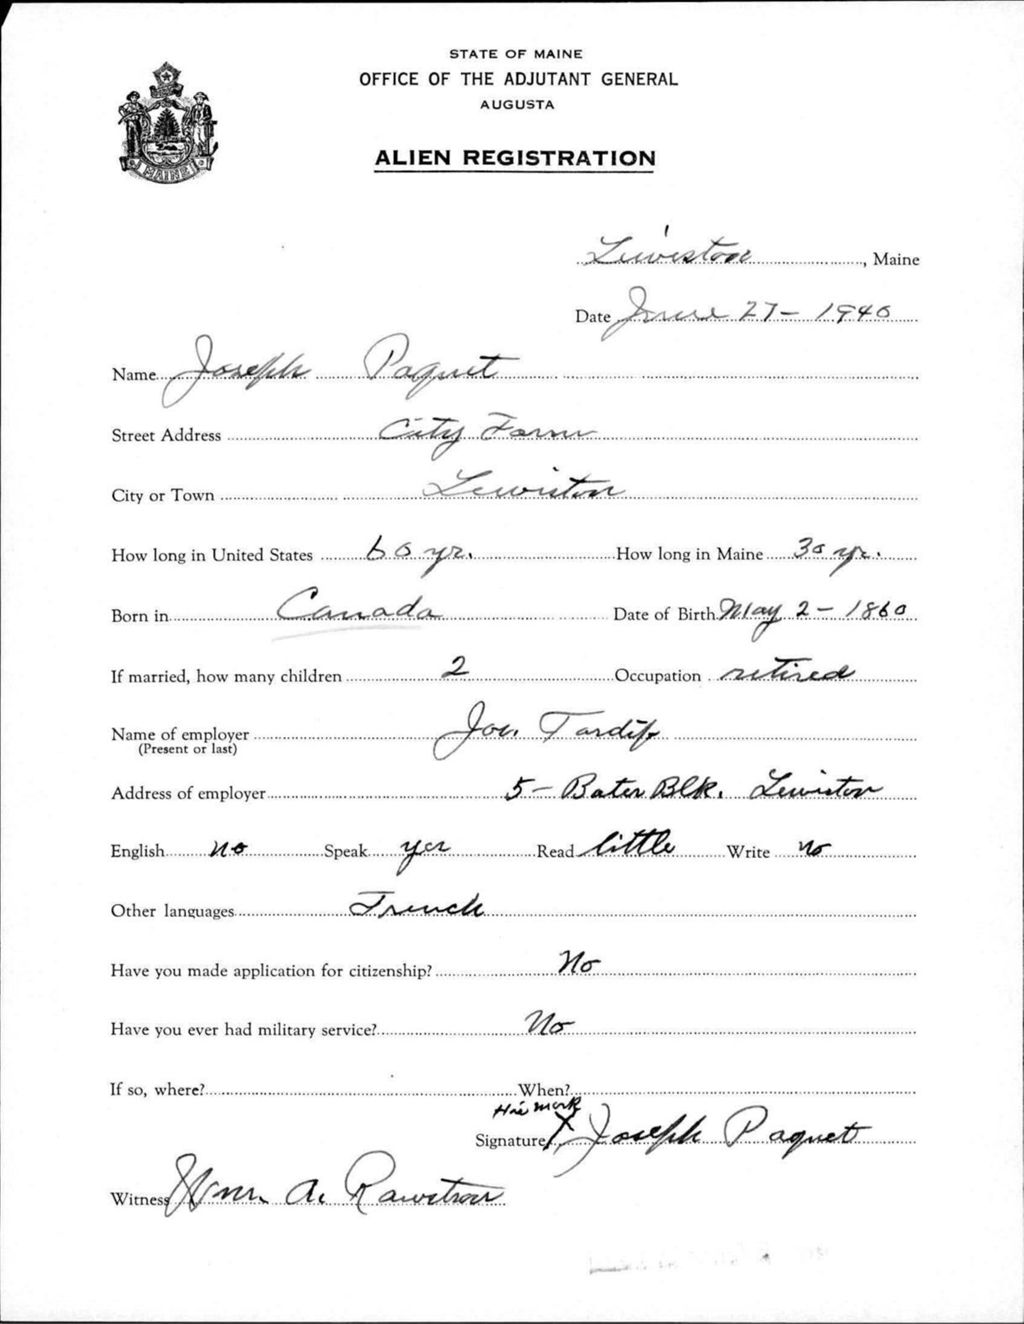 STATE OF MAINE
OFFICE OF THE ADJUTANT GENERAL
AUGUSTA
ALIEN REGISTRATION
MAINE
Lewiston, Maine
Date June 27 - 1940
Name Joseph Paquet
Street Address City Farm
City or Town Lewiston
How long in United States 60 yr. How long in Maine 30 yr.
Born in Canada Date of Birth May 2 - 1860
If married, how many children 2 Occupation retired
Name of employer Joe. Tardif
(Present or last)
Address of employer 5 - Bates Blk. Lewiston
English no Speak yes Read little Write no
Other languages French
Have you made application for citizenship? No
Have you ever had military service? No
If so, where? When?
His mark
Signature X Joseph Paquet
Witness Wm. A. Rawstron